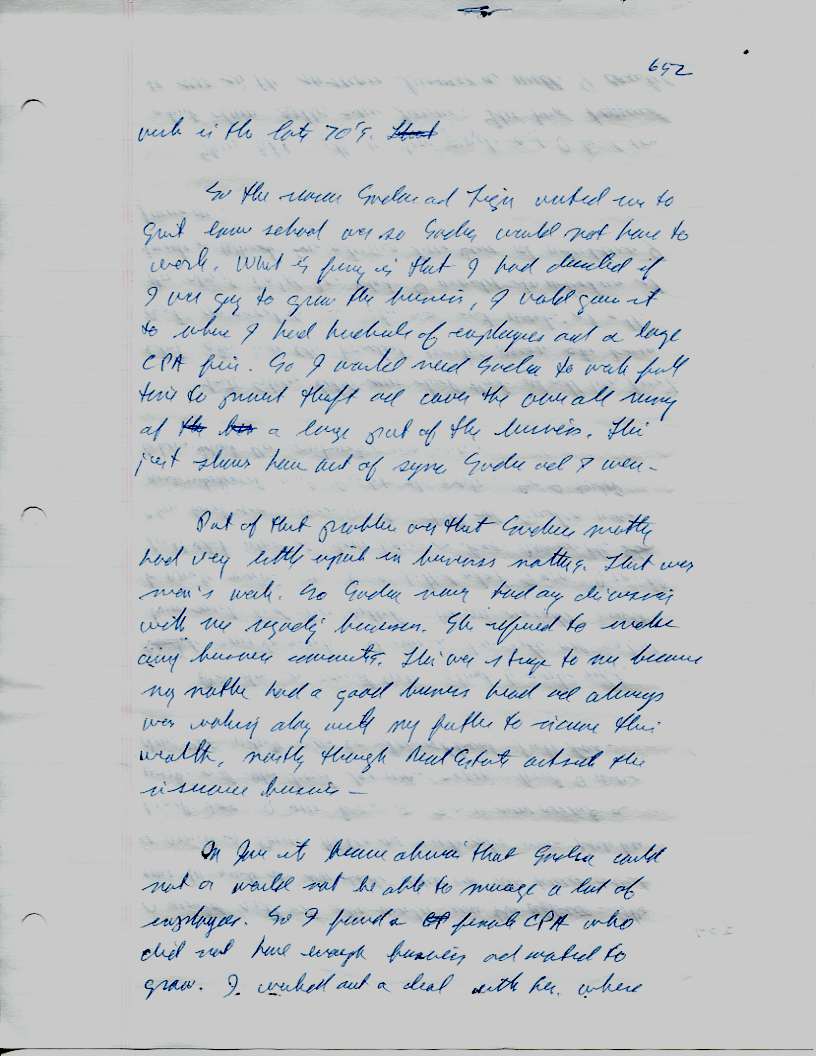 652
work in the late 70's. That
So the reason Gordia and Lign wanted me to
quit law school was so Gordia would not have to
work. What is funny is that I had decided if
I was going to grow the business, I would grow it
to where I had hundreds of employees and a large
CPA firm. So I would need Gordia to work full
time to prevent theft and cover the overall running
of the bus a large part of the business. This
just shows how out of sync Gordia and I were -
Part of that problem was that Gordia's mother
had very little in business matters. That was
men's work. So Gordia never had any discussion
with me regarding business. She refused to make
any business comments. This was strange to me because
my mother had a good business head and always
was working along with my father to increase their
wealth, mostly through Real Estate outside the
insurance business -
In June it became obvious that Gordia could
not or would not be able to manage a lot of
employees. So I found a female CPA who
did not have enough business and wanted to
grow. I worked out a deal with her, where